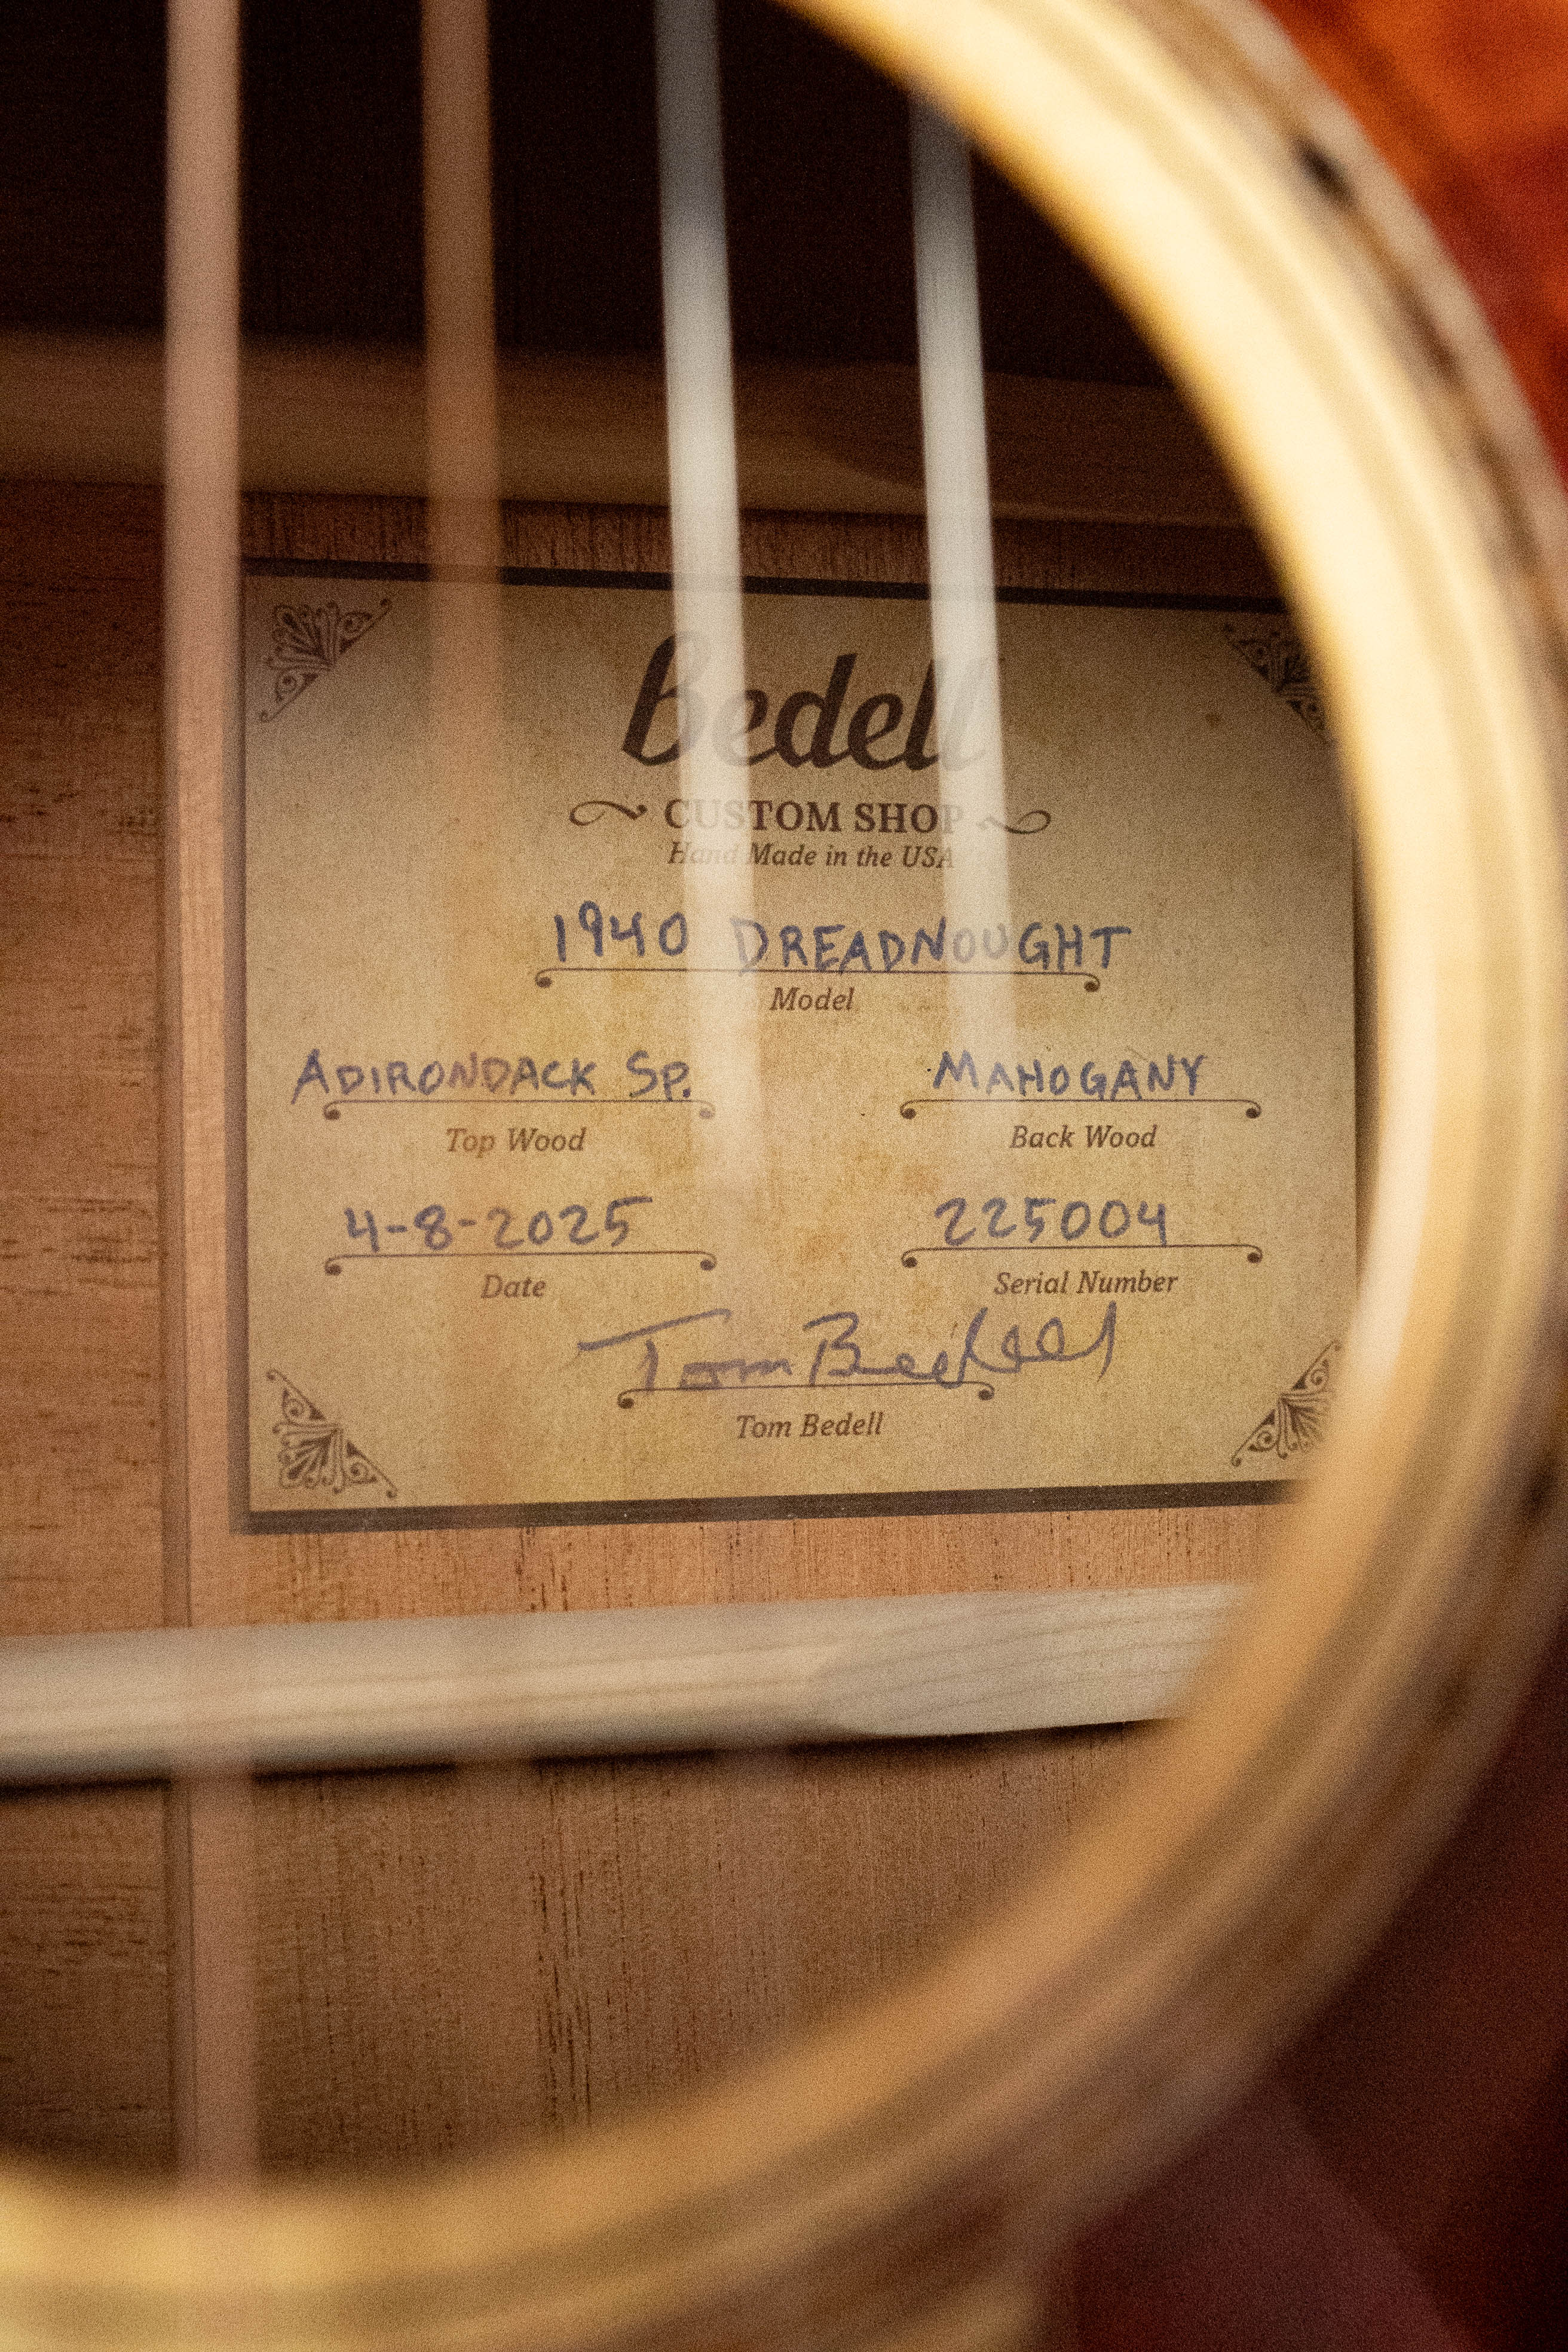 Bedell
CUSTOM SHOP
Hand Made in the USA
1940 DREADNOUGHT
Model
ADIRONDACK SP. MAHOGANY
Top Wood Back Wood
4-8-2025 225004
Date Serial Number
Tom Bedell
Tom Bedell